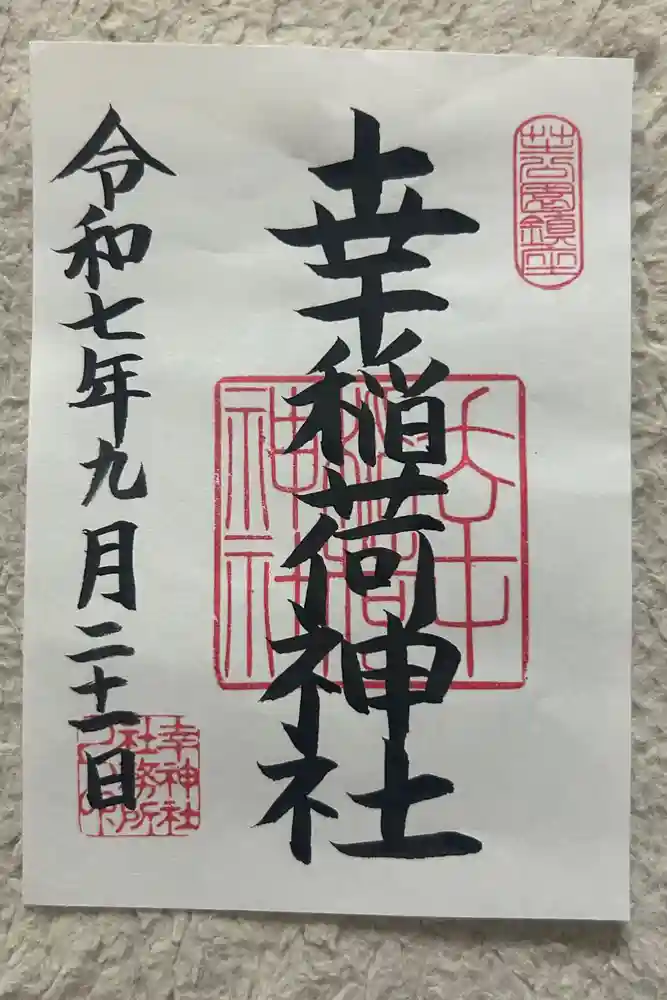 芝公園鎮座
幸稲荷神社
幸稲荷神社
令和七年九月二十一日
幸神社
社務所